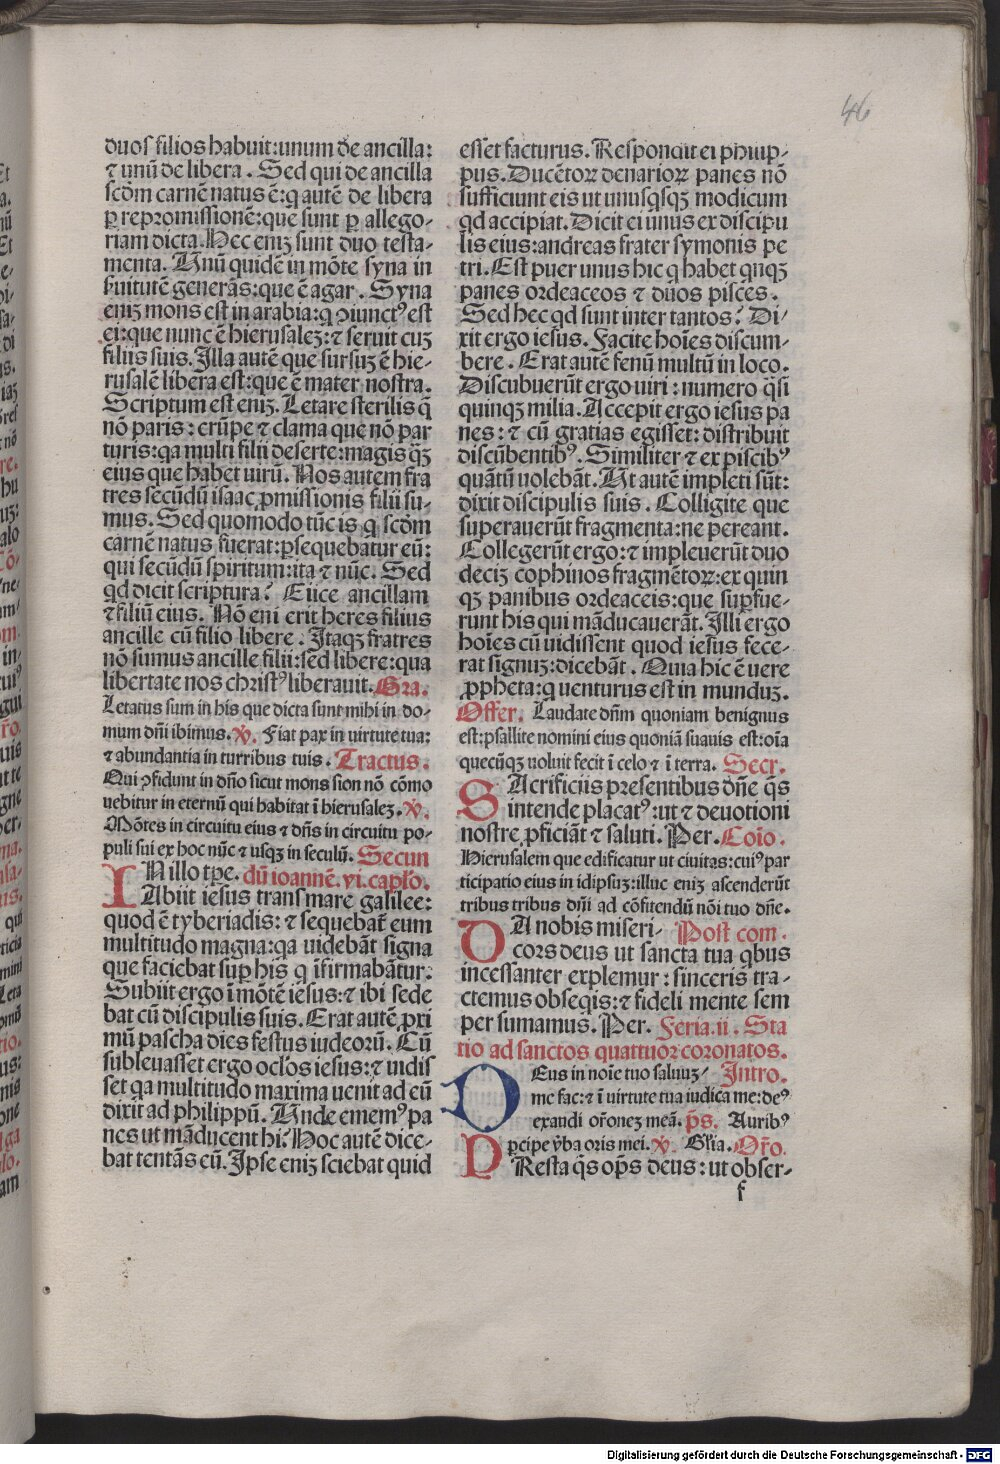 46
duos filios habuit: unum de ancilla:
⁊ unū de libera. Sed qui de ancilla
scd̄m carnē natus ē: q autē de libera
ꝑ repromissionē: que sunt ꝑ allego-
riam dicta. Hec eniꝫ sunt duo testa-
menta. Unū quidē in mōte syna in
ẜuitutē generās: que ē agar. Syna
eniꝫ mons est in arabia: q ꝯiunctꝰ est
ei: que nunc ē hierusaleꝫ: ⁊ seruit cuꝫ
filiis suis. Illa autē que sursuꝫ ē hie-
rusalē libera est: que ē mater nostra.
Scriptum est eniꝫ. Letare sterilis q̄
nō paris: erūpe ⁊ clama que nō par
turis: qa multi filii deserte: magis q̄ꝫ
eius que habet uirū. Nos autem fra
tres secūdū isaac ꝓmissionis filii su-
mus. Sed quomodo tūc is q scd̄m
carnē natus fuerat: ꝑsequebatur eū:
qui secūdū spiritum: ita ⁊ nūc. Sed
qd dicit scriptura? Eiice ancillam
⁊ filiū eius. Nō eni erit heres filius
ancille cū filio libere. Itaqꝫ fratres
nō sumus ancille filii: sed libere: qua
libertate nos christꝰ liberauit. Gra.
Letatus sum in his que dicta sunt mihi in do-
mum dn̄i ibimus. ℣. Fiat pax in uirtute tua:
⁊ abundantia in turribus tuis. Tractus.
Qui ꝯfidunt in dn̄o sicut mons sion nō cōmo
uebitur in eternū qui habitat ī hierusaleꝫ. ℣.
Mōtes in circuitu eius ⁊ dn̄s in circuitu po-
puli sui ex hoc nūc ⁊ usqꝫ in seculū. Secun
IN illo tp̄e. dū ioannē. vi. capl̄o.
Abiit iesus trans mare galilee:
quod ē tyberiadis: ⁊ sequebat̄ eum
multitudo magna: qa uidebāt signa
que faciebat suꝑ his q īfirmabātur.
Subiit ergo ī mōtē iesus: ⁊ ibi sede
bat cū discipulis suis. Erat autē ꝓxi
mū pascha dies festus iudeorū. Cū
subleuasset ergo ocl̄os iesus: ⁊ uidis
set qa multitudo maxima uenit ad eū
dixit ad philippū. Unde ememꝰ pa
nes ut māducent hi? Hoc autē dice-
bat tentās eū. Ipse eniꝫ sciebat quid
esset facturus. Respondit ei philip-
pus. Ducētoꝝ denarioꝝ panes nō
sufficiunt eis ut unusqsqꝫ modicum
qd accipiat. Dicit ei unus ex discipu
lis eius: andreas frater symonis pe
tri. Est puer unus hic q habet qnqꝫ
panes ordeaceos ⁊ duos pisces.
Sed hec qd sunt inter tantos? Di-
xit ergo iesus. Facite hoīes discum-
bere. Erat autē fenū multū in loco.
Discubuerūt ergo uiri: numero q̄si
quinqꝫ milia. Accepit ergo iesus pa
nes: ⁊ cū gratias egisset: distribuit
discūbentibꝰ. Similiter ⁊ ex piscibꝰ
quātū uolebāt. Ut autē impleti sūt:
dixit discipulis suis. Colligite que
superauerūt fragmenta: ne pereant.
Collegerūt ergo: ⁊ impleuerūt duo
deciꝫ cophinos fragmētoꝝ: ex quin
qꝫ panibus ordeaceis: que suꝑfue-
runt his qui māducauerāt. Illi ergo
hoīes cū uidissent quod iesus fece-
rat signuꝫ: dicebāt. Quia hic ē uere
ꝓpheta: q uenturus est in munduꝫ.
Offer. Laudate dn̄m quoniam benignus
est: psallite nomini eius quoniā suauis est: oīa
quecūqꝫ uoluit fecit ī celo ⁊ ī terra. Secr.
SAcrificiis presentibus dn̄e q̄s
intende placatꝰ: ut ⁊ deuotioni
nostre ꝓficiāt ⁊ saluti. Per. Coīo.
Hierusalem que edificatur ut ciuitas: cuiꝰ par
ticipatio eius in idipsuꝫ: illuc eniꝫ ascenderūt
tribus tribus dn̄i ad cōfitendū nōi tuo dn̄e.
DA nobis miseri- Post com.
cors deus ut sancta tua qbus
incessanter explemur: sinceris tra-
ctemus obseqis: ⁊ fideli mente sem
per sumamus. Per. Feria. ii. Sta
tio ad sanctos quattuor coronatos.
DEus in noīe tuo saluuꝫ Intro.
me fac: ⁊ ī uirtute tua iudica me: deꝰ
exandi or̄onez meā. p̄s. Auribꝰ
ꝑcipe v̄ba oris mei. ℣. Gl̄ia. Or̄o.
PResta q̄s op̄s deus: ut obser-
f
Digitalisierung gefördert durch die Deutsche Forschungsgemeinschaft - DFG